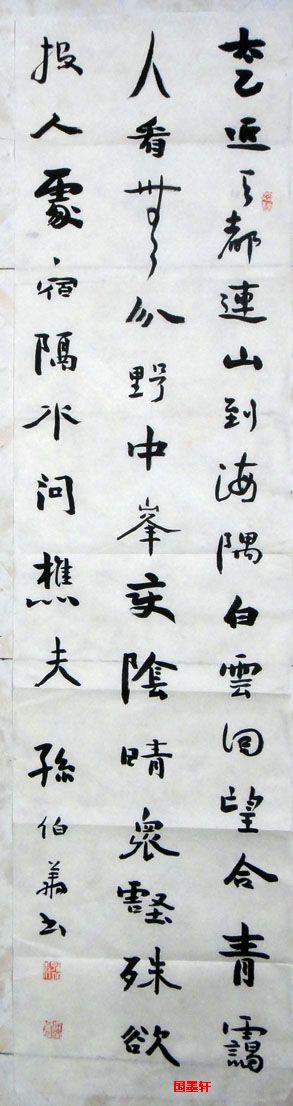 太乙近天都連山到海隅白雲回望合青靄
入看無分野中峯變陰晴衆壑殊欲
投人處宿隔水問樵夫 孫伯華书
国墨轩